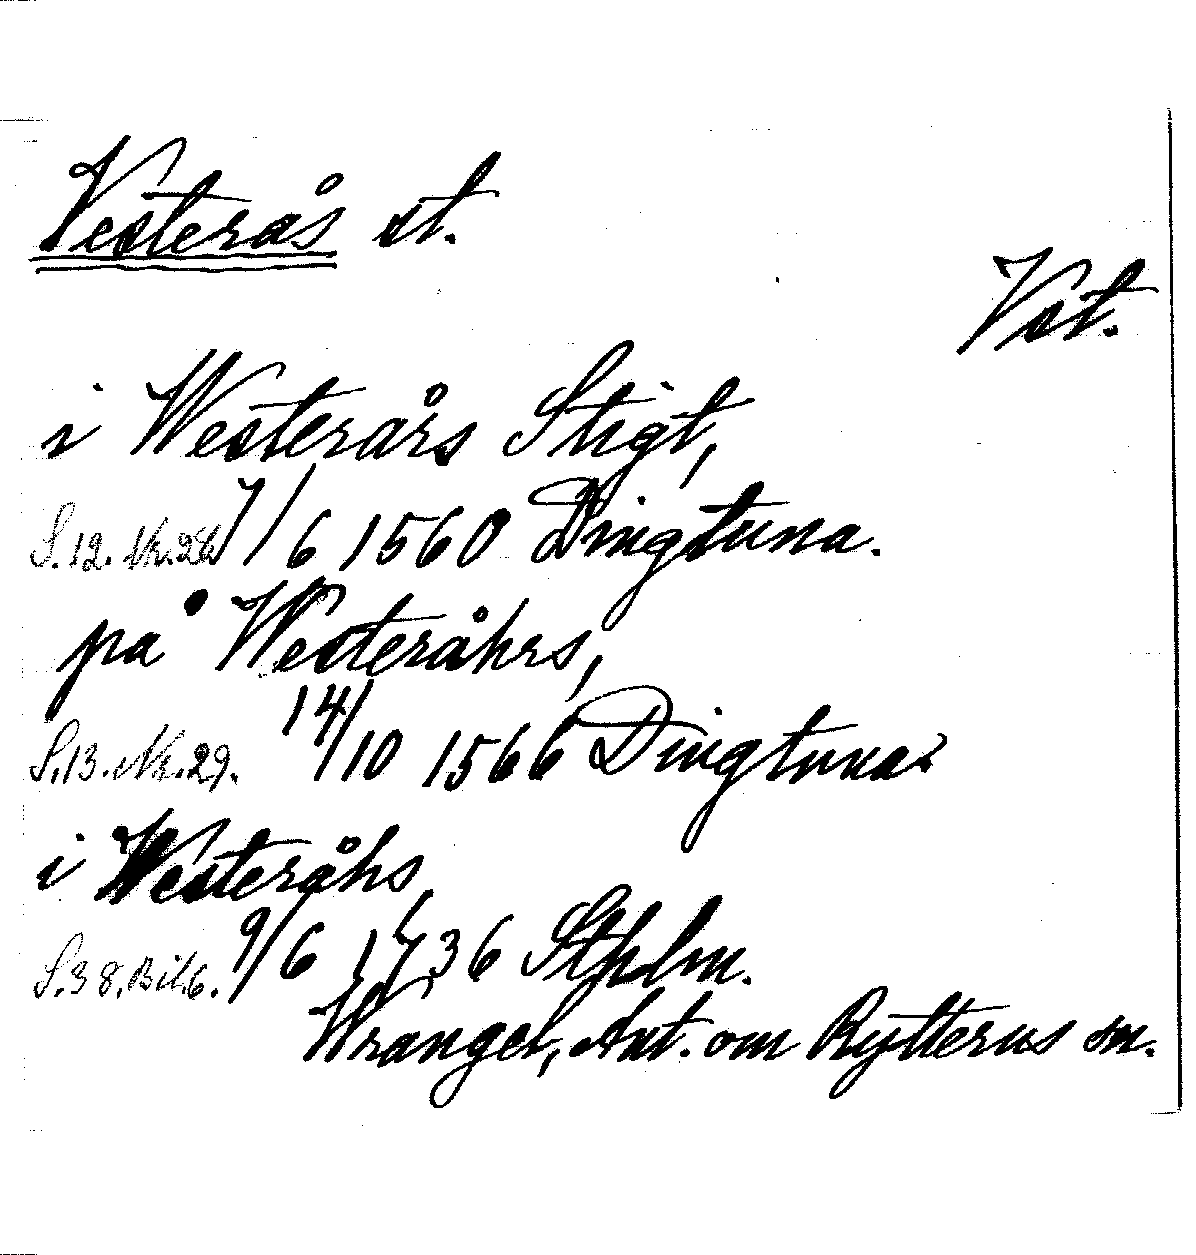 Vesterås st.
Vst.
i Westerårs Stigt,
S.12. Nr.26 7/6 1560 Dingtuna.
på Westeråhrs,
S.13. Nr.29. 14/10 1566 Dingtuna.
i Westeråhs,
S.38. Bil.6. 9/6 1736 Sthlm.
Wrangel, Ant. om Rytterus sn.